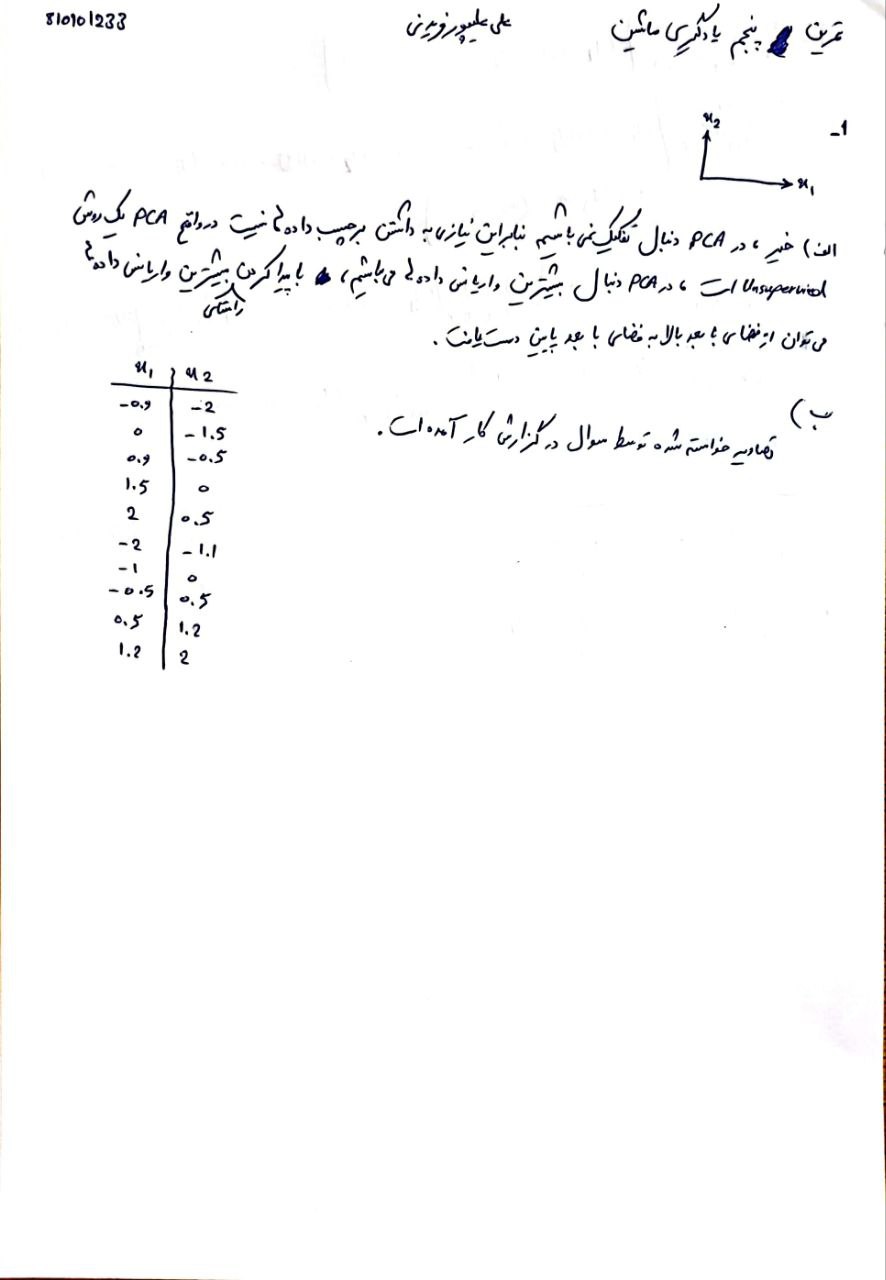 تمرین پنجم یادگیری ماشین
علی علیپور فریدنی
810101233
-1
x2
x1
الف) خیر ، در PCA دنبال تفکیک نمی باشیم بنابراین نیازی به داشتن برچسب داده ها نیست در واقع PCA یک روش
Unsupervied است ، در PCA دنبال بیشترین واریانس داده ها می باشیم ، با پیدا کردن راستای بیشترین واریانس داده ها
می توان از فضای با بعد بالا به فضای با بعد پایین دست یافت .
ب)
تصاویر خواسته شده توسط سوال در گزارش کار آمده است .
x1 x2
-0.9 -2
0 -1.5
0.9 -0.5
1.5 0
2 0.5
-2 -1.1
-1 0
-0.5 0.5
0.5 1.2
1.2 2